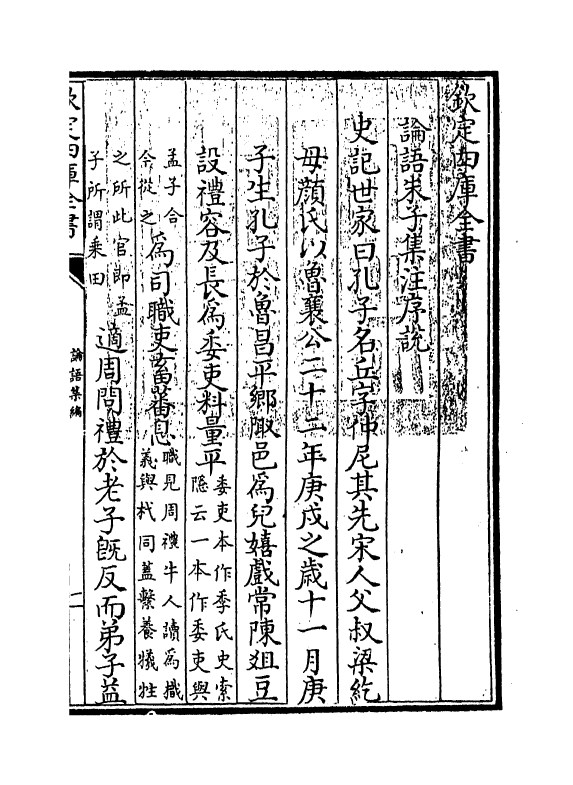 欽定四庫全書
論語朱子集注序說
史記世家曰孔子名丘字仲尼其先宋人父叔梁紇
母顏氏以魯襄公二十二年庚戌之歳十一月庚
子生孔子於魯昌平鄉陬邑為兒嬉戲常陳爼豆
設禮容及長為委吏料量平
委吏本作季氏史索
隱云一本作委吏與
孟子合
今從之
為司職吏畜蕃息
職見周禮牛人讀為樴
義與杙同蓋繫養犧牲
之所此官即孟
子所謂乘田
適周問禮於老子旣反而弟子益
欽定四庫全書
論語集編